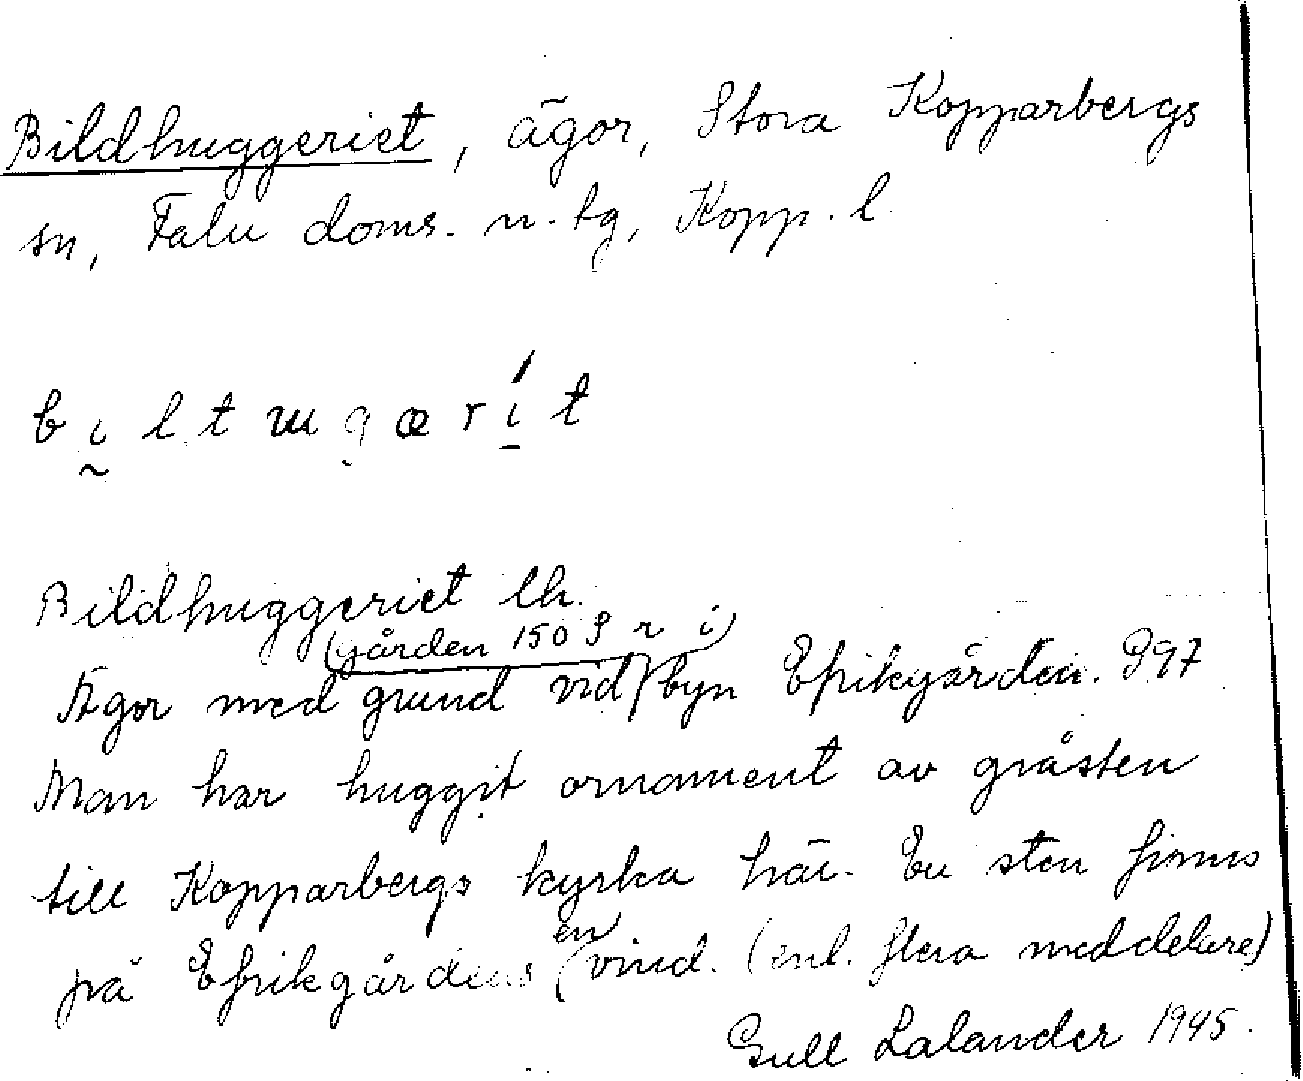 Bildhuggeriet, ägor, Stora Kopparbergs
sn, Falu doms. n. tg, Kopp. l.
b i l t ɯ g æ r í t
Bildhuggeriet lh.
(gården 150 S r i)
Ägor med grund vid byn Efrikgården. 997
Man har huggit ornament av gråsten
till Kopparbergs kyrka här. En sten finns
på Efrikgårdens en vind. (enl. flera meddelare)
Gull Lalander 1945.